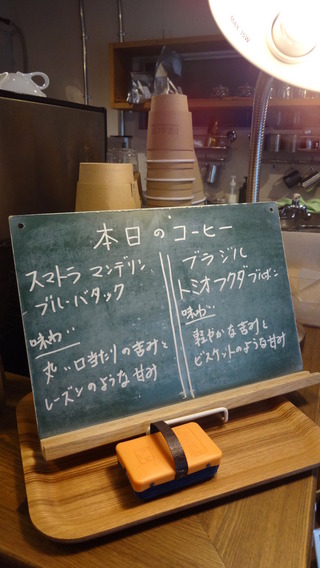 本日のコーヒー
スマトラ マンデリン
ブルーバタック
味わい
丸い口当たりの苦みと
レーズンのような甘み
ブラジル
トミオフクダブルボン
味わい
軽やかな苦みと
ビスケットのような甘み